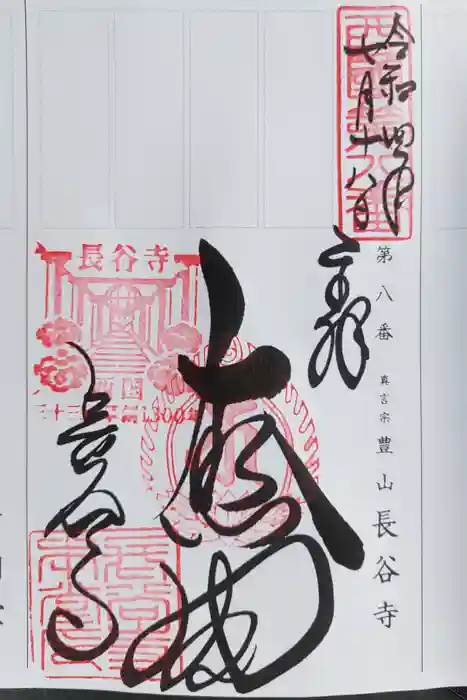 令和四年
七月十八日
奉拝
第八番 真言宗 豊山長谷寺
大悲殿
長谷寺
長谷寺
西国
三十三所草創1300年